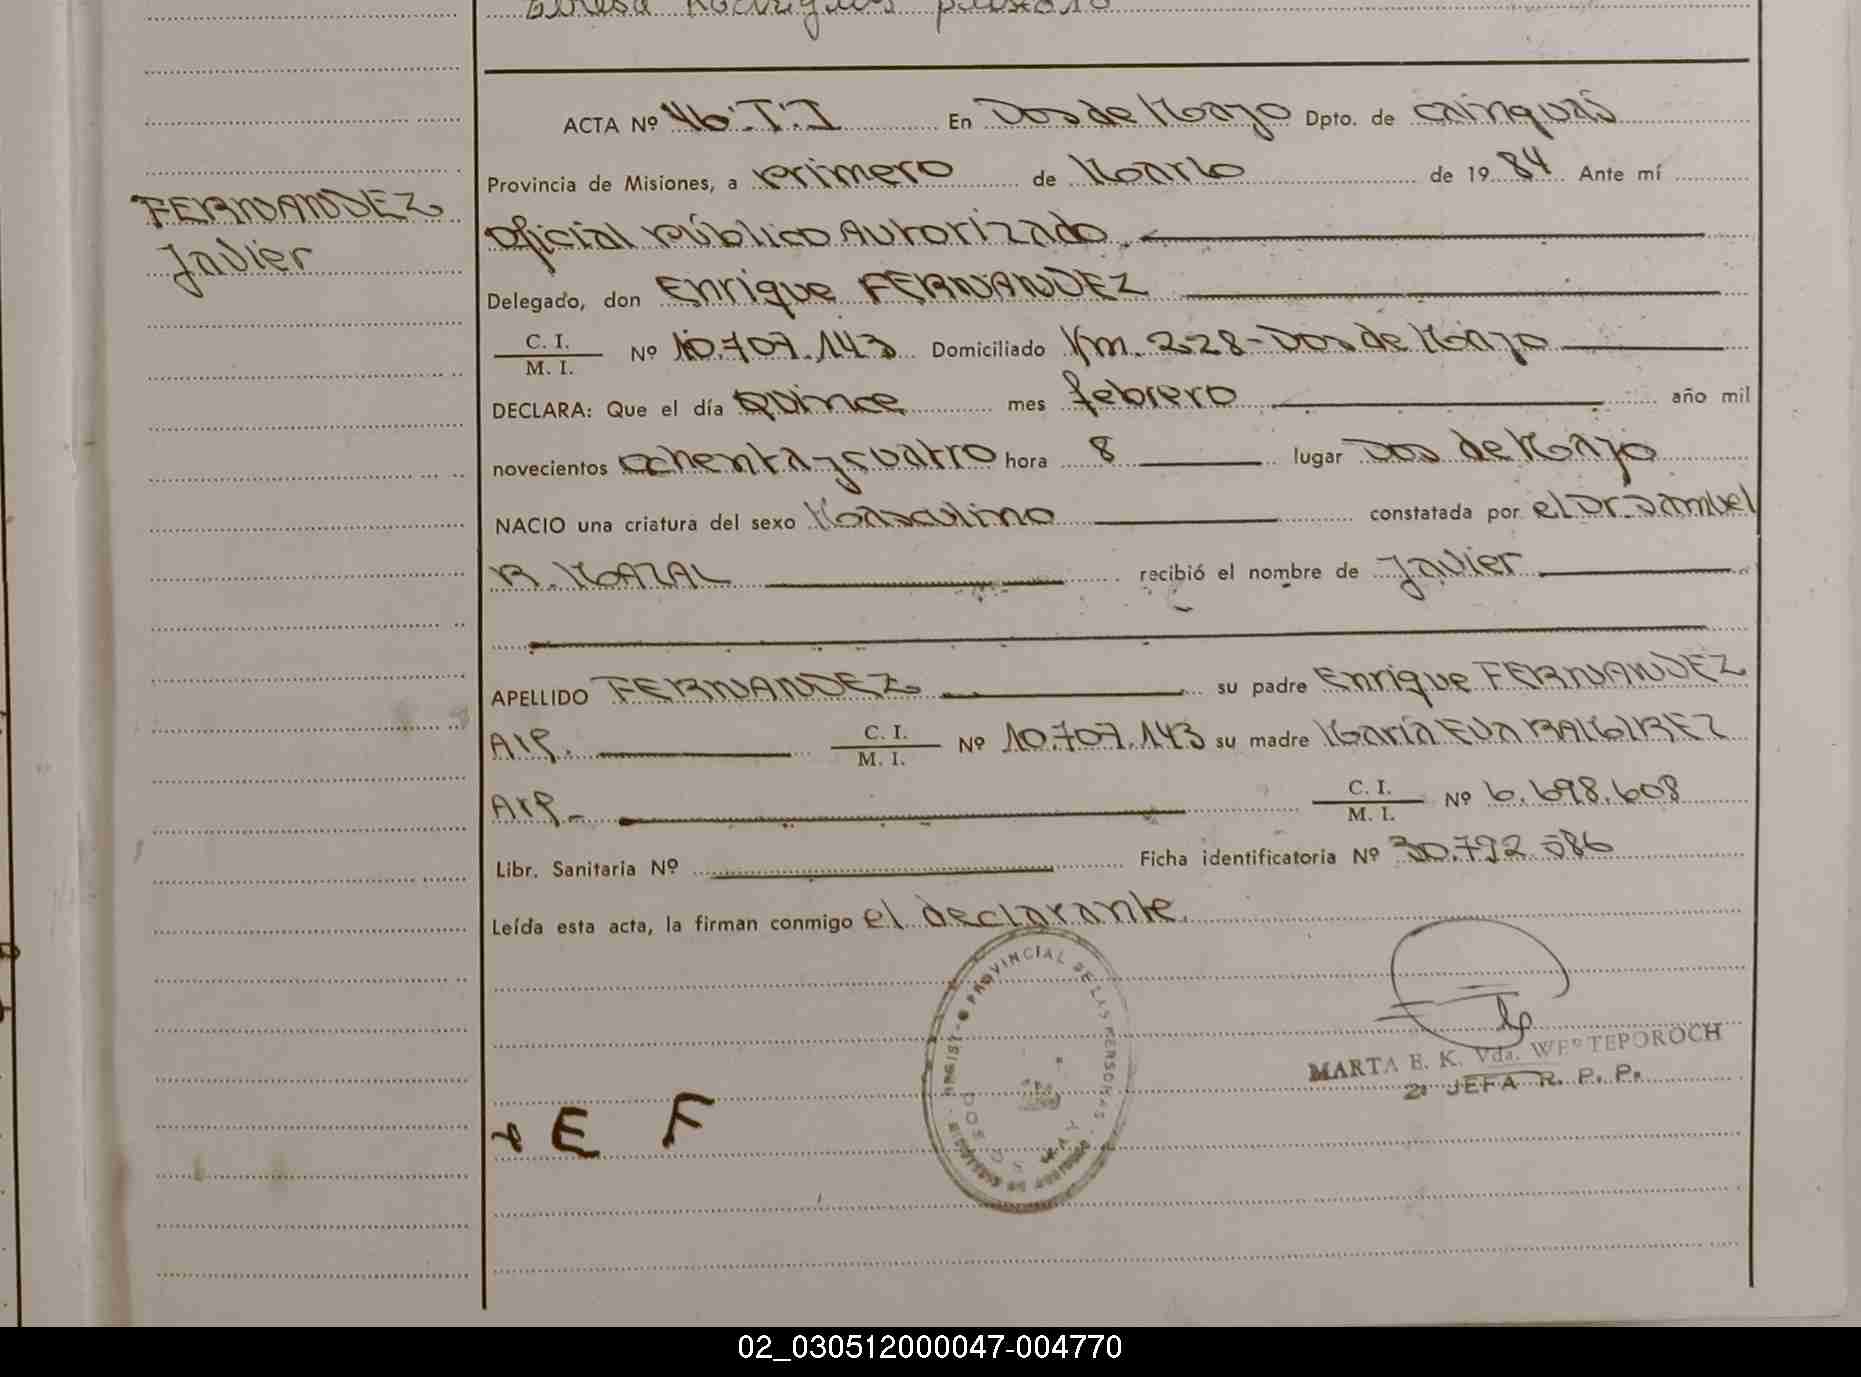 ACTA Nº 46.T.I En Dos de Mayo Dpto. de cainguás
Provincia de Misiones, a primero de Marzo de 1984 Ante mí
FERNANDEZ
Javier
Oficial Público Autorizado.
Delegado, don Enrique FERNANDEZ
C. I.
M. I. Nº 10.707.143 Domiciliado Km. 228-Dos de Mayo
DECLARA: Que el día Quince mes febrero año mil
novecientos ochenta y cuatro hora 8 lugar Dos de Mayo
NACIO una criatura del sexo Masculino constatada por el Dr. Samuel
R. MAZAL recibió el nombre de Javier
APELLIDO FERNANDEZ su padre Enrique FERNANDEZ
Arg. C. I.
M. I. Nº 10.707.143 su madre María Eva RAMIREZ
Arg. C. I.
M. I. Nº 6.698.608
Libr. Sanitaria Nº Ficha identificatoria Nº 30.792.086
Leída esta acta, la firman conmigo el declarante.
PROVINCIAL DE LAS PERSONAS
MARTA E. K. Vda. WESTEPOROCH
2º JEFA R. P. P.
E F
02_030512000047-004770